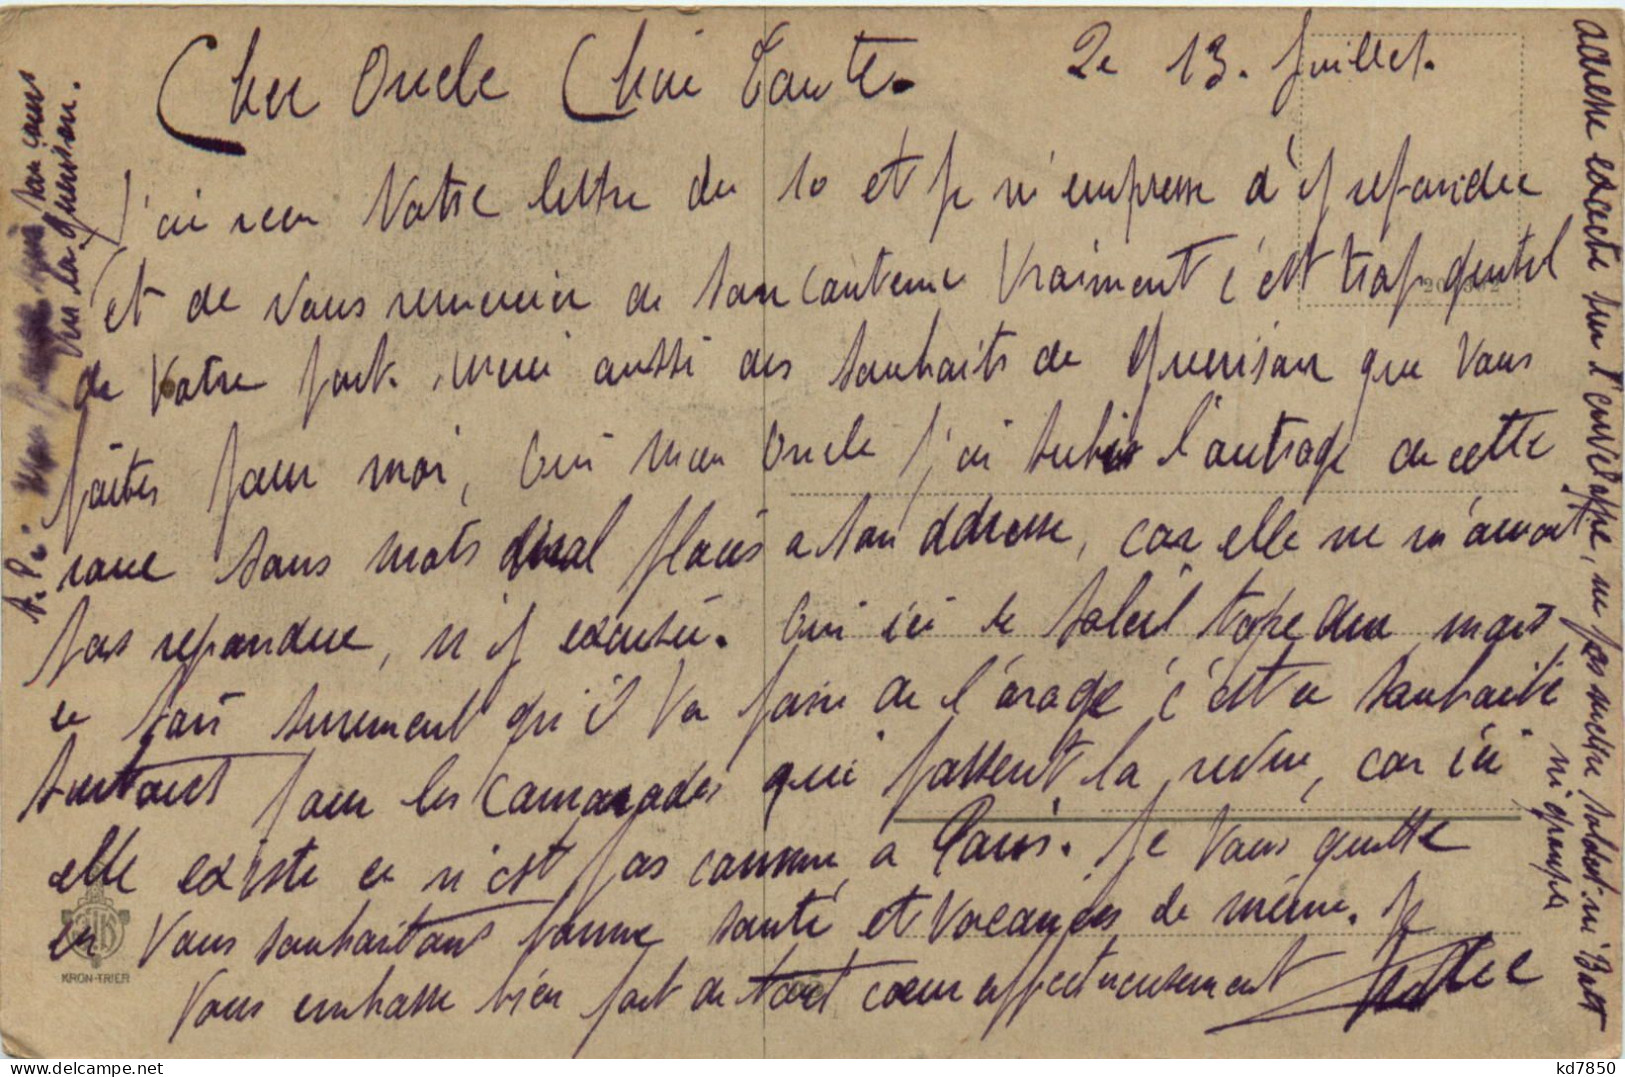 Cher Oncle Chère Tante. Le 13. Juillet.
J'ai reçu Votre lettre du 10 et je m'empresse d'y repondre
et de Vous remercier de son contenu Vraiment c'est trop gentil
de Votre part. merci aussi des souhaits de guerison que Vous
faites pour moi, Oui mon Oncle j'ai subis l'outrage de cette
rave sans mots placés a son addresse, car elle ne m'aurait
pas repondue, n'y excusée. Oui ici le soleil tape dur mais
ce soir surement qu'il Va faire de l'orage c'est a souhaité
surtout pour les camarades qui passent la revue, car ici
elle existe ce n'est pas comme a Paris. Je Vous quitte
en Vous souhaitant bonne santé et Vacances de même. Je
Vous embrasse bien fort de tout cœur affectueusement
KRON-TRIER
adresse exacte sur l'enveloppe, ne pas mettre soldat ni Batt
ni groupe
en la guerison.
kd7850